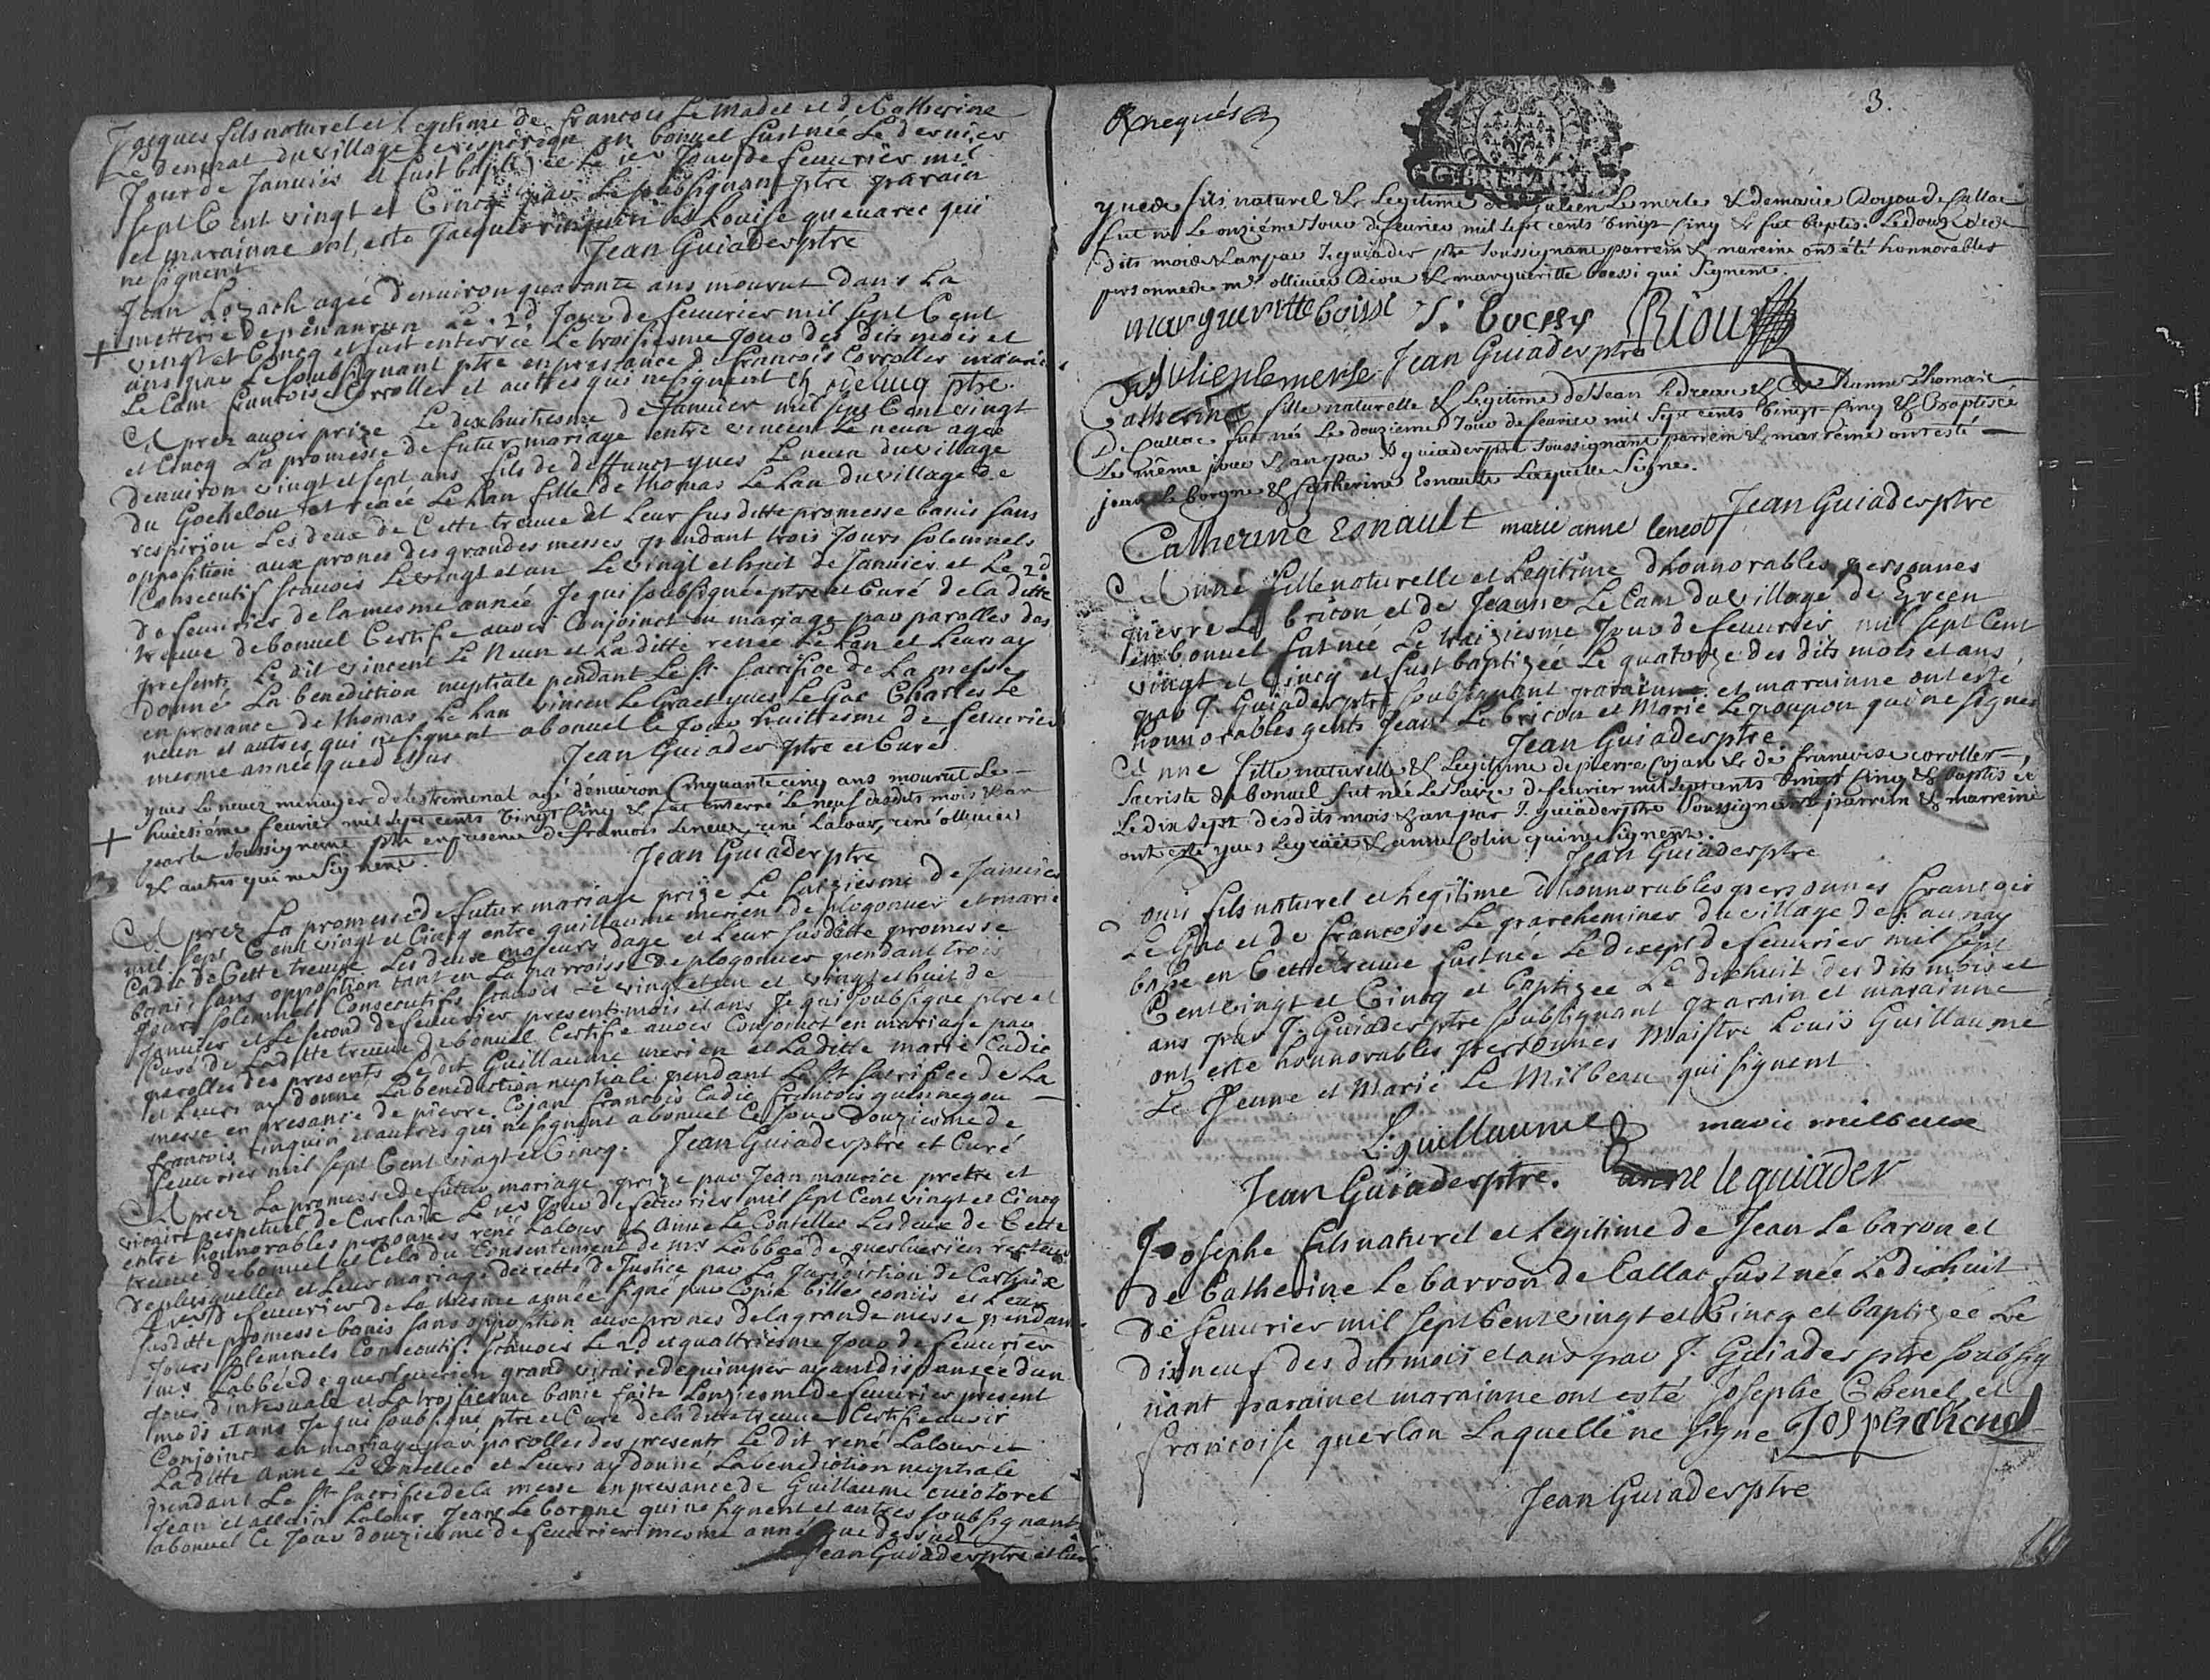 Jacques fils naturel et Legitime de francois Le Madet et de Catherine
Le dentrat du village en bonuel fust née Le dernier
Jour de Januier et fust baptizée Le 1er Jour de feuurier mil
sept Cent vingt et Cincq par Le soubsignant ptre parain
et marainne ont esté Jacques et Louise queuarec qui
ne signent Jean Guiader ptre
Jean Lozach agée denuiron quarante ans mourut dans La
metterie de penanrun Le 2d Jour de feuurier mil sept Cent
vingt et Cincq et fust enterrée Le troisiesme Jour des dits mois et
ans par Le soubsignant ptre en presance de francois Corroller maurice
Le Cam francoise Corroller et autres qui ne signent ptre.
Aprez auoir prize Le dixhuitiesme de Januier mil sept Cent vingt
et Cincq La promesse de futur mariage entre vincent Le neun agée
denuiron vingt et sept ans fils de deffunct yues Le neun du village
du Gochelou et renée Le han fille de thomas Le han du village de
respiriou Les deux de Cette treuue et Leur sus ditte promesse banis sans
opposition aux prones des grandes messes pendant trois Jours solemnels
Consecutif scauoir Le vingt et un Le vingt et huit de Januier et Le 2d
de feuurier de la mesme année Je qui soubsignée ptre et Curé de la ditte
treuue de bonuel Certifie auoir Conjoinct en mariage par parolles des
presents Le dit vincent Le Neun et La ditte renée Le han et Leurs ay
donné La benediction nuptiale pendant Le st sacrifice de La messe
en presance de thomas Le han vincen Le Graet yues Le Gac Charles Le
neun et autres qui ne signent a bonuel le Jour huittiesme de feuurier
mesme année que dessus Jean Guiader ptre et Curé
yues Le neuez menager de lestremenal agé d'enuiron Cinquante cinq ans mourut Le
huitiéme feurier mil sept cents vingt Cinq & fut enterré Le neuf desdits mois & an
par le soussignant ptre en presence de francois Leneuez, rené Lalour, rené olliuier
& autres qui ne signent. Jean Guiader ptre
Aprez La promesse de futur mariage prize Le saiziesme de Januier
mil sept Cent vingt et Cincq entre guillaume merien de plogonuer et marie
Cadic de Cette treuue Les deux majeurs dage et Leur sus ditte promesse
banis sans opposition tant en La parroisse de plogonuer pendant trois
Jours solemnels Consecutifs scauoir Le vingt et un et vingt et huit de
Januier et Le second de feuurier present mois et ans Je qui soubsigne ptre et
Curé de Laditte treuue de bonuel Certifie auoir Conjoinct en mariage par
parolles des presents Le dit Guillaume merien et Laditte marie Cadic
et Leurs ay donné La benediction nuptiale pendant Le st sacrifice de La
messe en presance de pierre Cojan francois Cadic francois quemnegou
francois tinquin et autres qui ne signent a bonuel Ce Jour Douziesme de
feuurier mil sept Cent vingt et Cincq. Jean Guiader ptre et Curé
Aprez La promesse de futur mariage prize par Jean maurice prettre et
vicaire perpetuel de Carhaix Le 1er Jour de feuurier mil sept Cent vingt et Cincq
entre honnorables personnes rené Lalour et Anne Le Contellec Les deux de Cette
treuue de bonuel et Cela du Consentement de mr Labbée de queluerien recteur
de plusquellec et Leur mariage decretté de Justice par La Jurisdiction de Carhaix
Le 1er de feuurier de La mesme année signé par Copie et Leur
sus ditte promesse banis sans opposition aux prones de la grande messe pendant
Jours solemnels Consecutif scauoir Le 2d et quattriesme Jour de feuurier
mr Labbée de queluerien grand vicaire de quimper ayant dispansée d'un
Jour d'interuale et La troisiesme banie faite Lonziesme de feuurier present
mois et ans Je qui soubsigne ptre et Curé de la ditte treuue Certifie auoir
Conjoinct en mariage par parolles des presents Le dit rené Lalour et
Laditte Anne Le Contellec et Leurs ay donné La benediction nuptiale
pendant Le st sacrifice de la messe en presance de Guillaume
Jean et allain Lalour Jean Le borgne qui ne signent et autres soubsignants
a bonuel Ce Jour douziesme de feuurier mesme année que dessus
Jean Guiader ptre et Curé
3.
G. BRETAGN
yues fils naturel & Legitime de Julien Le merle & de marie de Callac
fut né Le onziéme Jour de feurier mil sept cents vingt Cinq & fut baptisé Le douze des
dits mois & an par J. guiader ptre soussignant parrein & mareine ont été honnorables
personnes mr olliuier Riou & margueritte boessi qui signent.
margueritte boissi Riou
Julien le merle Jean Guiader ptre
Catherine fille naturelle & Legitime de Jean & danne Thomas
De Callac fut née Le douzieme Jour de feurier mil sept cents vingt Cinq & Baptisée
Le même jour & an par J. guiader ptre soussignant parrein & marreine ont esté
jean le borgne & Catherine Esnault Laquelle signe.
Catherine Esnault marie anne Jean Guiader ptre
Anne fille naturelle et Legitime d'honnorables personnes
pierre Le bricon et de Jeanne Le Cam du village de Green
en bonuel fut née Le traiziesme Jour de feuurier mil sept Cent
vingt et Cincq et fust baptizée Le quatorze des dits mois et ans
par J. Guiader ptre soubsignant parainne et marainne ont esté
honnorables gents Jean Le bricon et Marie Le poupon qui ne signent
Jean Guiader ptre
Anne fille naturelle & Legitime de pierre Cojan & de francoise coroller
Sacriste de bonuel fut née Le Saize de feurier mil sept cents vingt Cinq & baptisée
Le dix sept des dits mois & an par J. guiader ptre soussignant parrein & marreine
ont esté yues & anne Colin qui ne signent.
Jean Guiader ptre
fils naturel et Legitime d'honnorables personnes francois
Le Gac et de francoise Le parcheminer du village de
en Cette treuue fust née Le dixsept de feuurier mil sept
Cent vingt et Cincq et baptizée Le dixhuit des dits mois et
ans par J. Guiader ptre soubsignant parain et marainne
ont esté honnorables personnes Maistre Louis Guillaume
Le Jeune et Marie Le Milbeau qui signent
L: guillaume marie milbeau
Jean Guiader ptre. anne le guiader
Josephe fils naturel et Legitime de Jean Le baron et
de Catherine Le barron de Callac fust née Le dixhuit
de feuurier mil sept Cent vingt et Cincq et baptizée Le
dixneuf des dits mois et ans par J. Guiader ptre soubsig
nant parain et marainne ont esté Josephe Chenel et
francoise querlan Laquelle ne signe
Jean Guiader ptre